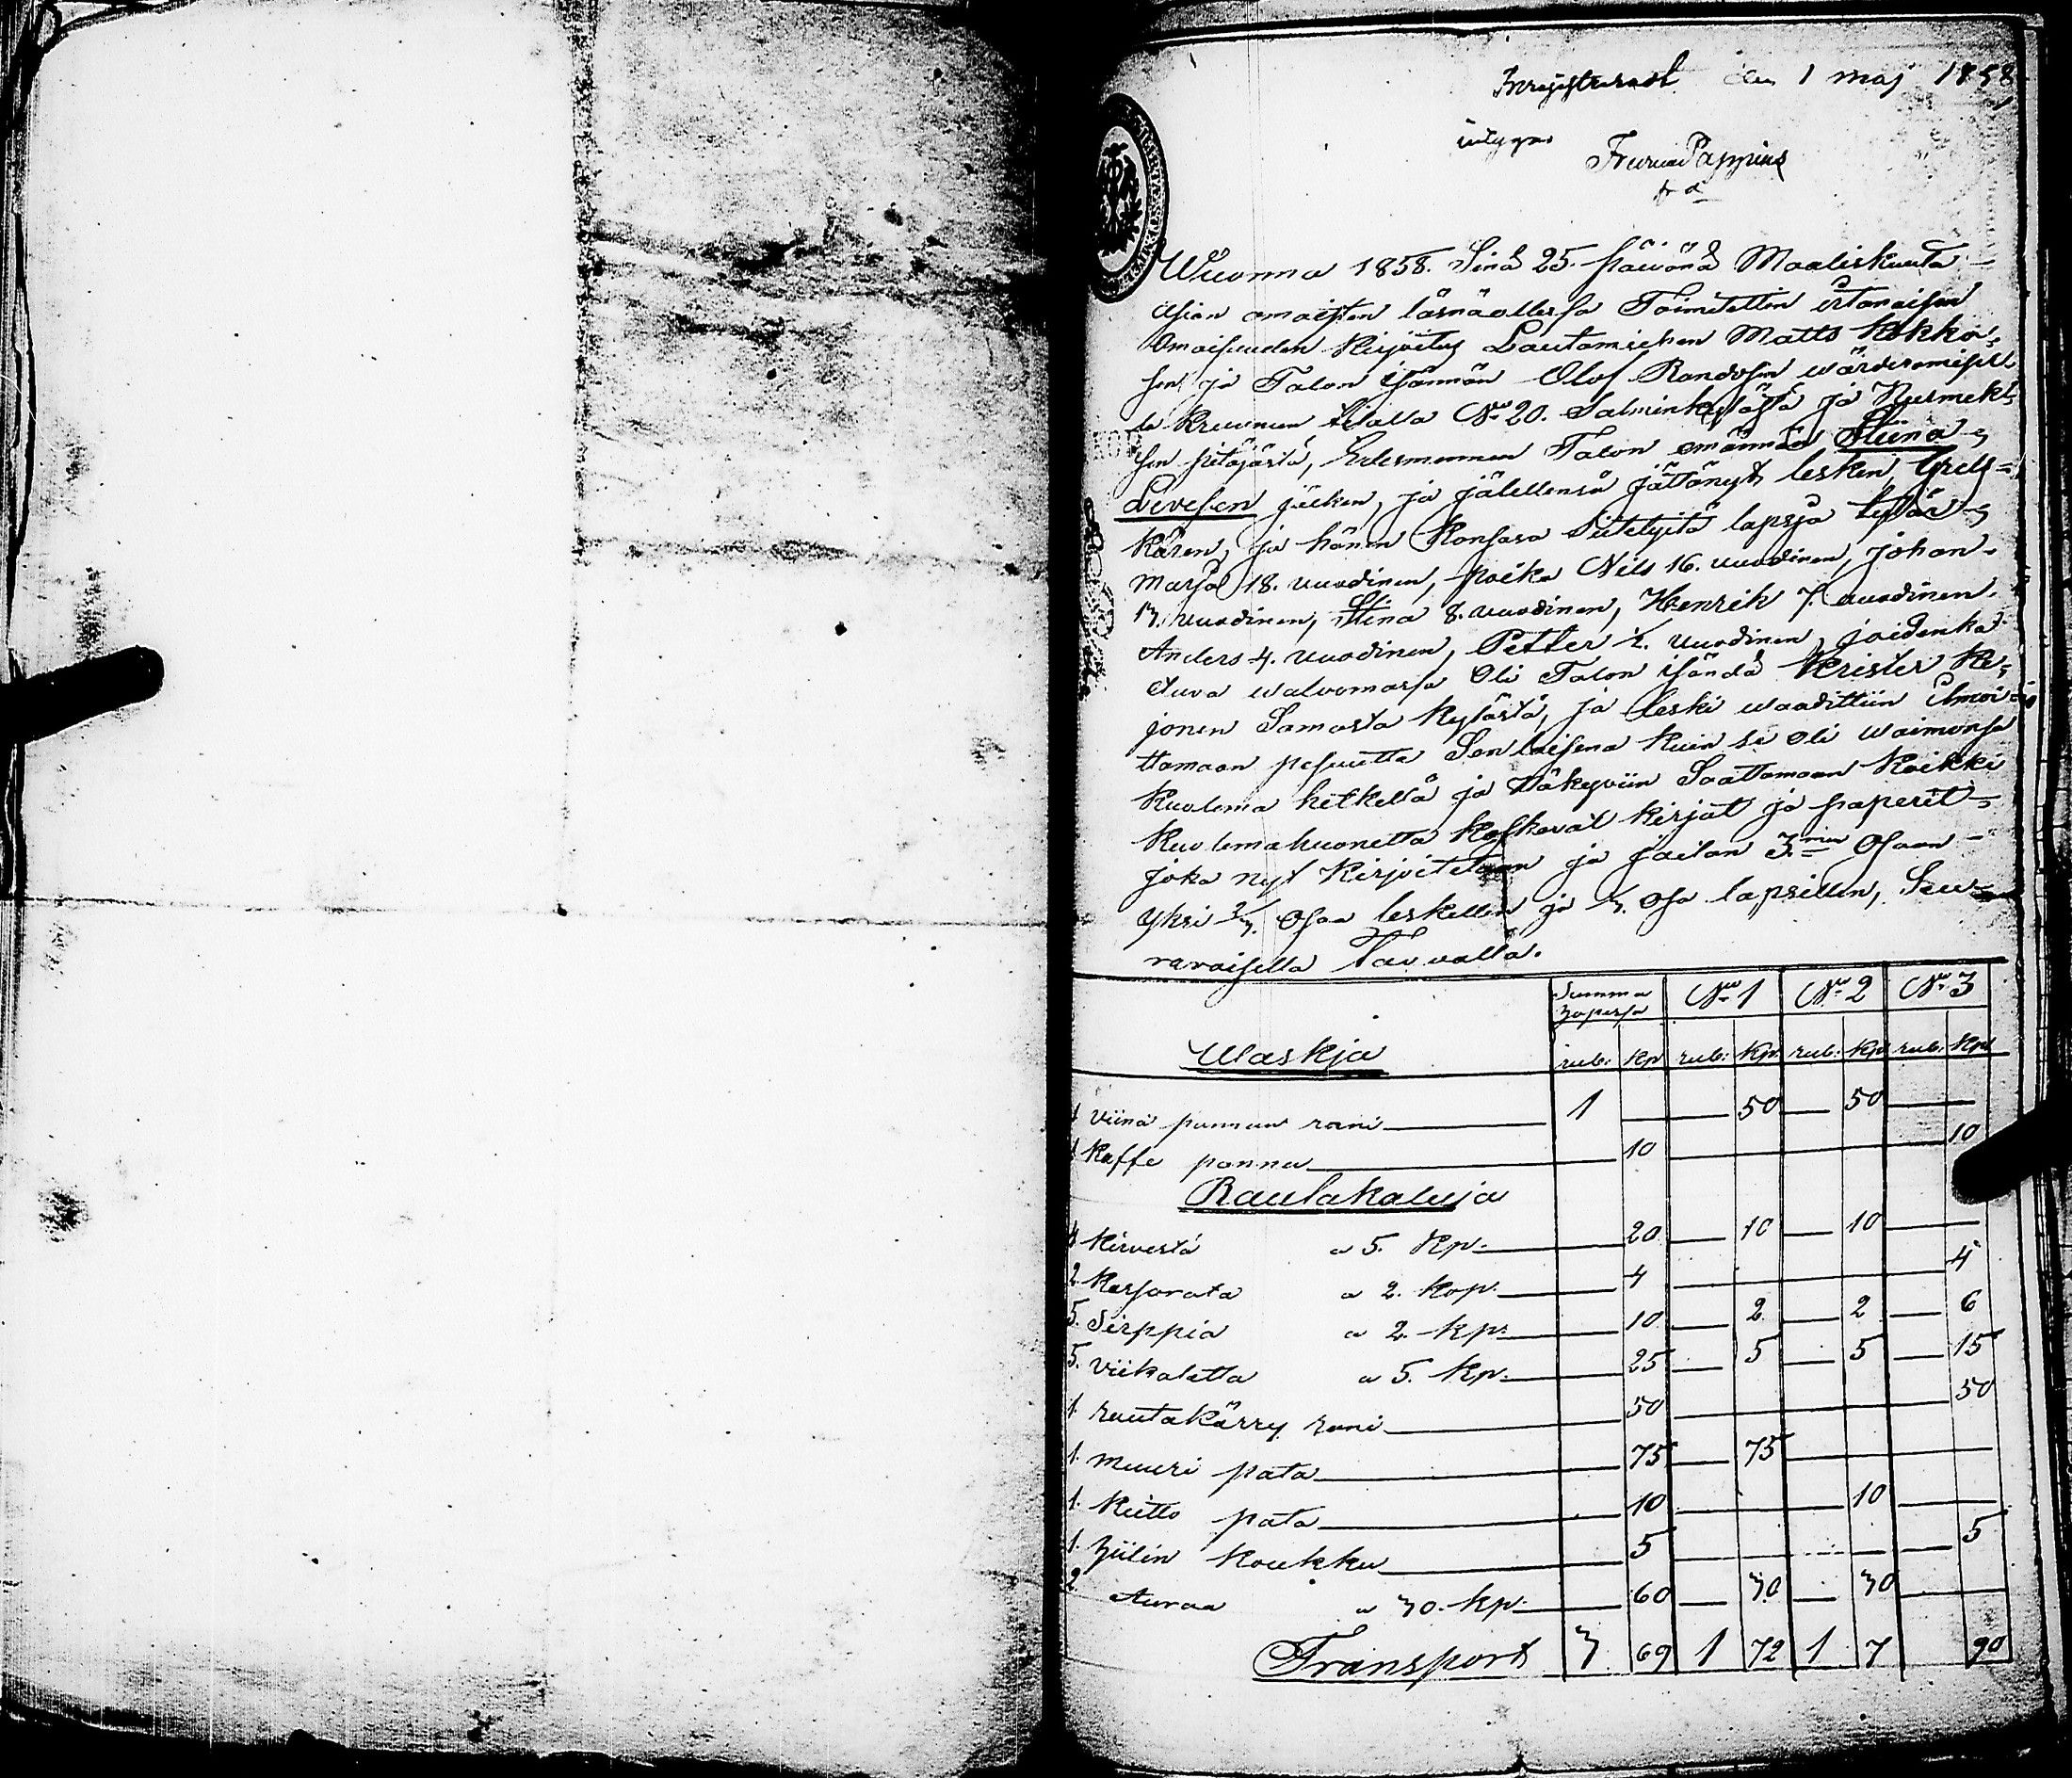 den 1 maj 1858
intygar
Pappius
Wuonna 1858. Sinä 25. päivänä Maaliskuuta
Asian omaisten läsnäollessa Toimitettiin irtonaisen
Omaisuuden Kirjoitus Lautamiehen Matts Kokko-
sen ja Talon isännän Olof Rondosen wärderamisel-
la Kruunun tilalla No 20. Salminkylässä ja Nurmek-
sen pitäjästä, Edesmennen Talon emännän Stiina
Levosen jälken, ja jälellensä jättänyt lesken, Grels
Kären, ja hänen Kansasa Siitetyitä lapsia tytär
Marja 18. vuodinen, poika Nils 16. vuodinen, Johan
13. vuodinen, Stina 8. vuodinen, Henrik 7. vuodinen.
Anders 4. vuodinen, Petter ½. vuodinen, joidenka
etuva walvomassa Oli Talon isändä Krister Ke-
jonen Samasta Kylästä, ja leski waadittiin ilmoi-
ttamaan pesuutta Sen laisena kuin se oli waimonsa
Kuolema hetkellä ja Näkyviin Saattamaan Kaikki
Kuolemahuonetta Koskevat kirjat ja paperit
joka nyt Kirjoitetaan ja jaetan 3:men Osaan
Yksi 2/3. Osaa leskellen ja 1/3. Osa lapsillen, Seu-
ravaisella Tavvalla.
Summa hopessa No 1 No 2 No 3
Waskia rub: Kp rub: Kp: rub: Kp rub: Kp:
1 Viina pannun rani 1 50 50
1 Kaffe pannu 10 10
Rautakaluja
4 Kirvestä a 5. Kp. 20 10 10
2. Kasarata a 2. Kop. 4 4
5. Sirppiä a 2. kp: 10 2 2 6
5. Viikatetta a 5. Kp. 25 5 5 15
1. rautakärry rani 50 50
1. muuri pata 75 75
1. Keitto pata 10 10
1. hiilin Koukku 5 5
2. Auraa a 30. Kp: 60 30 30
Transport 3 69 1 72 1 7 90